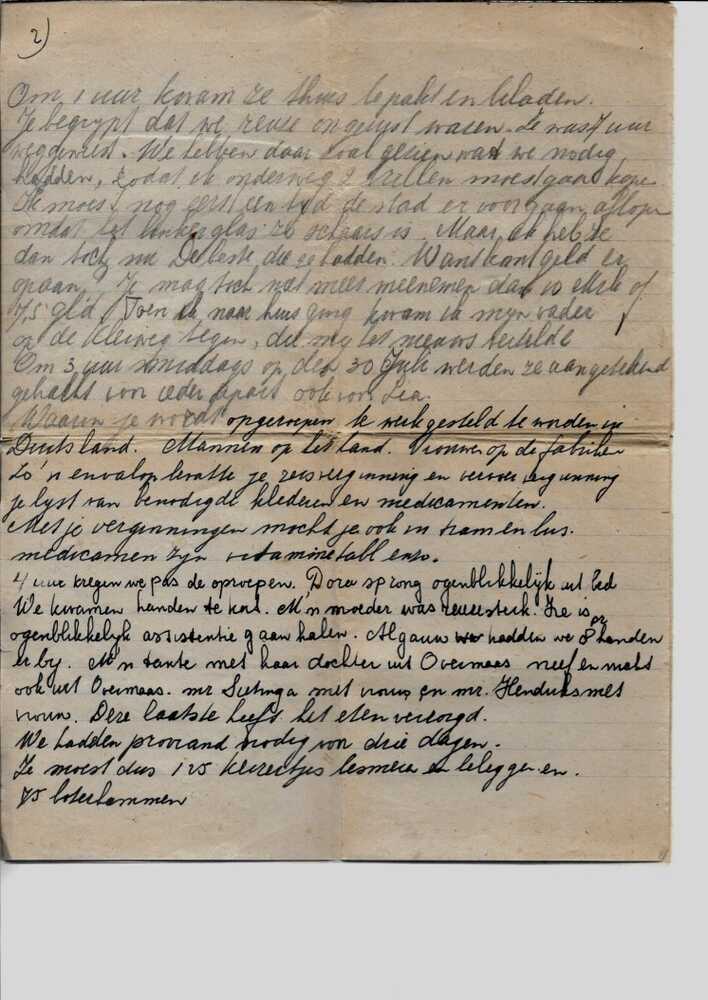 2)
Om 1 uur kwam ze thuis bepakt en beladen.
Je begrypt dat we reuse ongerust waren. Ze was 7 uur
weggeweest. We hebben daar zoal gezien wat we nodig
hadden, zodat ik onderweg 2 brillen moest gaan kope
Ik moest nog eerst een tyd de stad er voor gaan aflope
omdat het donker glas zo schaars is. Maar ik heb ze
dan toch nu De beste die ze hadden. Want kant geld er
opaan. Je mag toch niet meer meenemen dan 10 Mrk of
7,5 gld. Toen ik naar huis ging kwam ik myn vader
op de Kleiweg tegen, die my het nieuws vertelde
Om 3 uur smiddags op den 30 Juli werden ze aangetekend
gebracht voor ieder apart ook voor Lea.
Waarin je wordt opgeroepen te werk gesteld te worden in
Duitsland. Mannen op het land. Vrouwen op de fabriken
Zo'n envalop bevatte je reisverginning en vervoerverginning
je lyst van benodigde klederen en medicamenten.
Met je verginningen mocht je ook in tram en bus.
medicamen zyn vitaminetabl enzo.
4 uur kregen we pas de oproepen. Dora sprong ogenblikkelijk uit bed
We kwamen handen te kort. M'n moeder was reuzesterk. Ze is
ogenblikkelyk assistentie gaan halen. Al gauw hadden we 8 pr handen
erby. M'n tante met haar dochter uit Overmaas neef en nicht
ook uit Overmaas. mr Sietinga met vrouw en mr. Hendriks met
vrouw. Deze laatste heeft het eten verzorgd.
We hadden proviand nodig voor drie dagen.
Je moest dus 125 sneetjes besmeren en beleggen en.
75 boterhammen